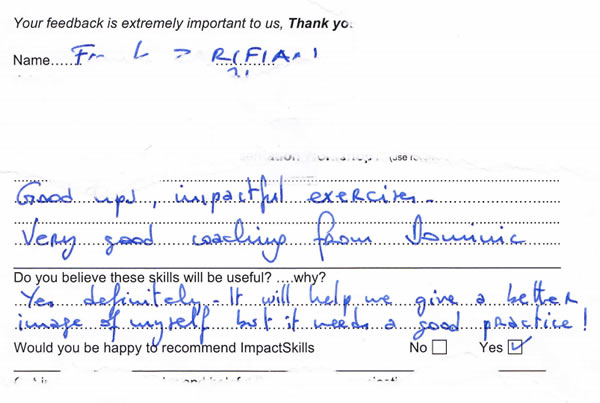 Your feedback is extremely important to us, Thank yo
Name.....
(use
Good ups, impactful exercises.
Very good coaching from Dominic
Do you believe these skills will be useful? ....why?
Yes definitely - It will help me give a better
image of myself but it needs a good practice!
Would you be happy to recommend ImpactSkills No Yes